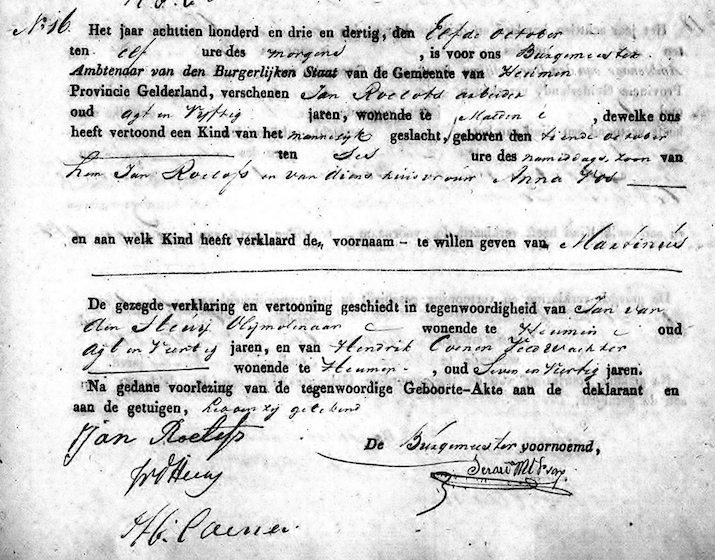 No. 16. Het jaar achttien honderd en drie en dertig, den Elfde October
ten elf ure des morgens , is voor ons Burgemeester
Ambtenaar van den Burgerlijken Staat van de Gemeente van Heumen
Provincie Gelderland, verschenen Jan Roelofs arbeider
oud agt en Vyftig jaren, wonende te Malden , dewelke ons
heeft vertoond een Kind van het mannelyk geslacht, geboren den tiende October
ten Ses ure des namiddags, zoon van
hem Jan Roelofs en van diens huisvrouw Anna Vos
en aan welk Kind heeft verklaard de voornaam – te willen geven van Martinus
De gezegde verklaring en vertooning geschiedt in tegenwoordigheid van Jan van
den Olymolenaar wonende te Heumen oud
agt en Veertig jaren, en van Hendrik Coenen Veldwachter
wonende te Heumen , oud Seven en Veertig jaren.
Na gedane voorlezing van de tegenwoordige Geboorte-Akte aan de deklarant en
aan de getuigen, hebben zy getekend
Jan Roelofs
De Burgemeester voornoemd,
H. Coenen